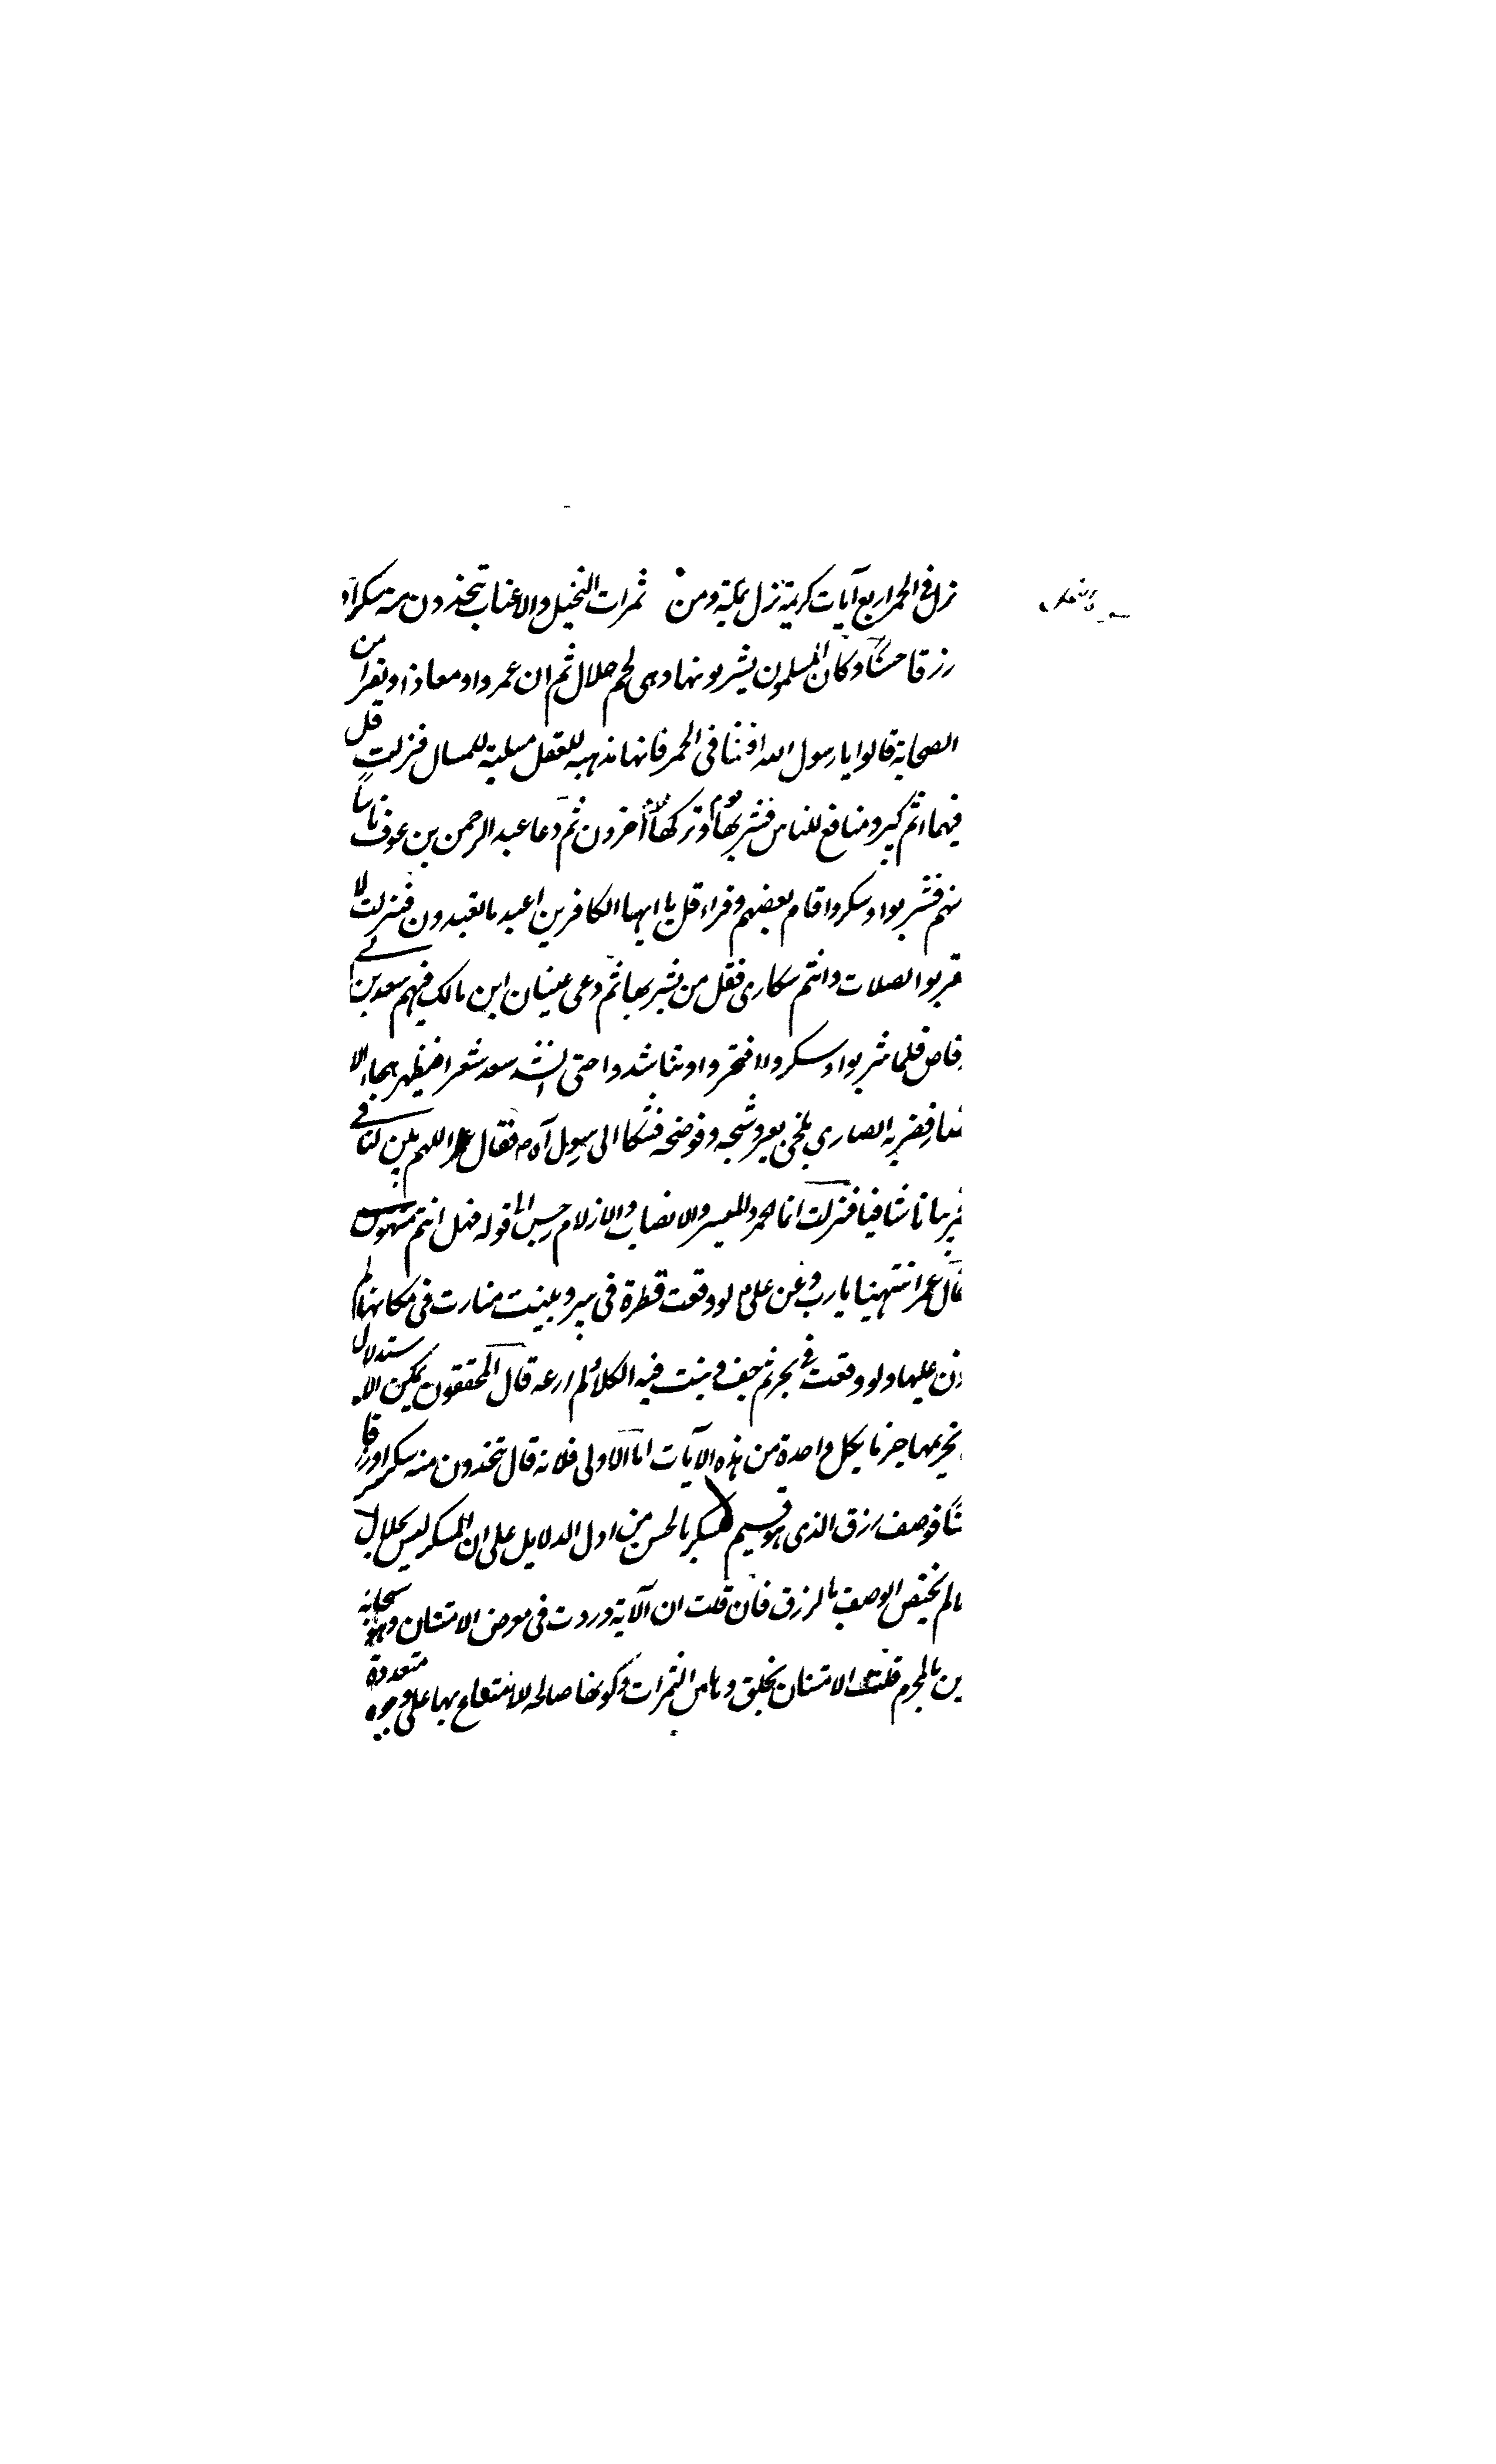 نزل فی الخمر اربع آیات کریمة نزل بمکة ومن ثمرات النخیل والاعناب تتخذون منه سکرا و
رزقا حسنا وکان المسلمون یشربونها وهی لهم حلال ثم ان عمر و معاذا ونفرا من
الصحابة قالوا یا رسول الله افتنا فی الخمر فانها مذهبه للعقل مسلبة للمال فنزلت قل
فیهما اثم کبیر و منافع للناس فشربها قوم وترکها آخرون ثم دعا عبد الرحمن بن عوف ناسا
منهم فشربوا وسکروا قام بعضهم وقراء قل یا ایها الکافرین اعبد ما تعبدون فنزلت لا
تقربوا الصلات وانتم سکاری فقل من یشربها ثم دعی عتبان ابن مالک فیهم سعد بن ابی
وقاص فلما شربوا وسکروا افتخروا وتناشدوا حتی انشد سعد شعرا هجاء الا
نصار فضربه انصاری بلحی بعیر وشجه وفوضحه فشکا الی رسول الله ص فقال عمر اللهم بین لنا فی
الخمر بیانا شافیا فنزلت انما الخمر والمیسر والانصاب والازلام رجس الی قوله فهل انتم منتهون
فقال عمر انتهینا یا رب وعن علی م لو وقعت قطرة فی بیر و بنیت منارت فی مکانها لم
اوذن علیها ولو وقعت فی بحر ثم جف و نبت فیه الکلاء لم ارعه قال المحققون یمکن الاستدلال
تحریمها جزما بکل واحدة من هذه الآیات اما الاولی فلانه قال تتخذون منه سکرا ورزقا
حسنا فوصف رزق الذی هو قسیم المسکر بالحسن من ادل الدلایل علی ان المسکر لیس بحلال
مالم یختص الوصف بالرزق فان قلت ان الآیة وردت فی معرض الامتنان وهو سبحانه
بالمحرم قلت الامتنان بخلق الثمرات وکونها صالحه للانتفاع بها علی وجوه متعددة